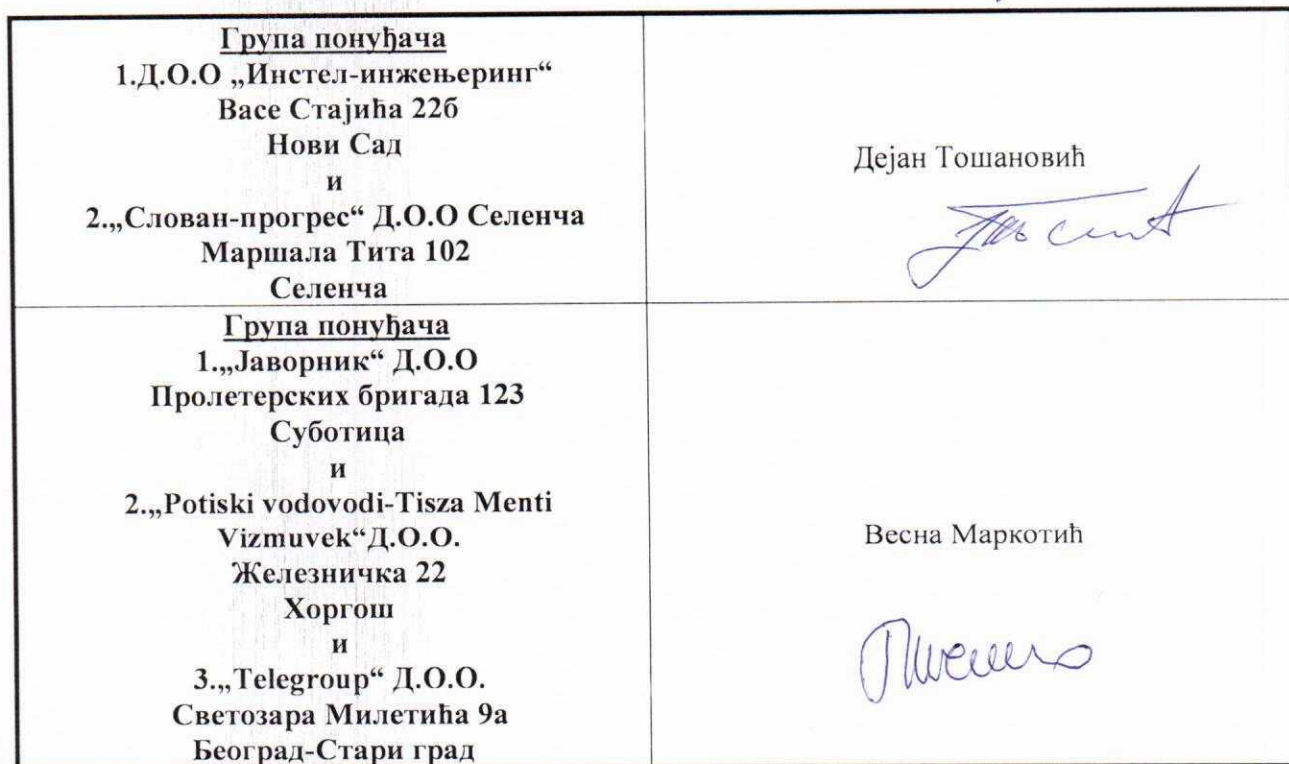 Група понуђача
1.Д.О.О „Инстел-инжењеринг“
Васе Стајића 22б
Нови Сад
и
2.„Слован-прогрес“ Д.О.О Селенча
Маршала Тита 102
Селенча
Дејан Тошановић
Група понуђача
1.„Јаворник“ Д.О.О
Пролетерских бригада 123
Суботица
и
2.„Potiski vodovodi-Tisza Menti
Vizmuvek“Д.О.О.
Железничка 22
Хоргош
и
3.„Telegroup“ Д.О.О.
Светозара Милетића 9а
Београд-Стари град
Весна Маркотић